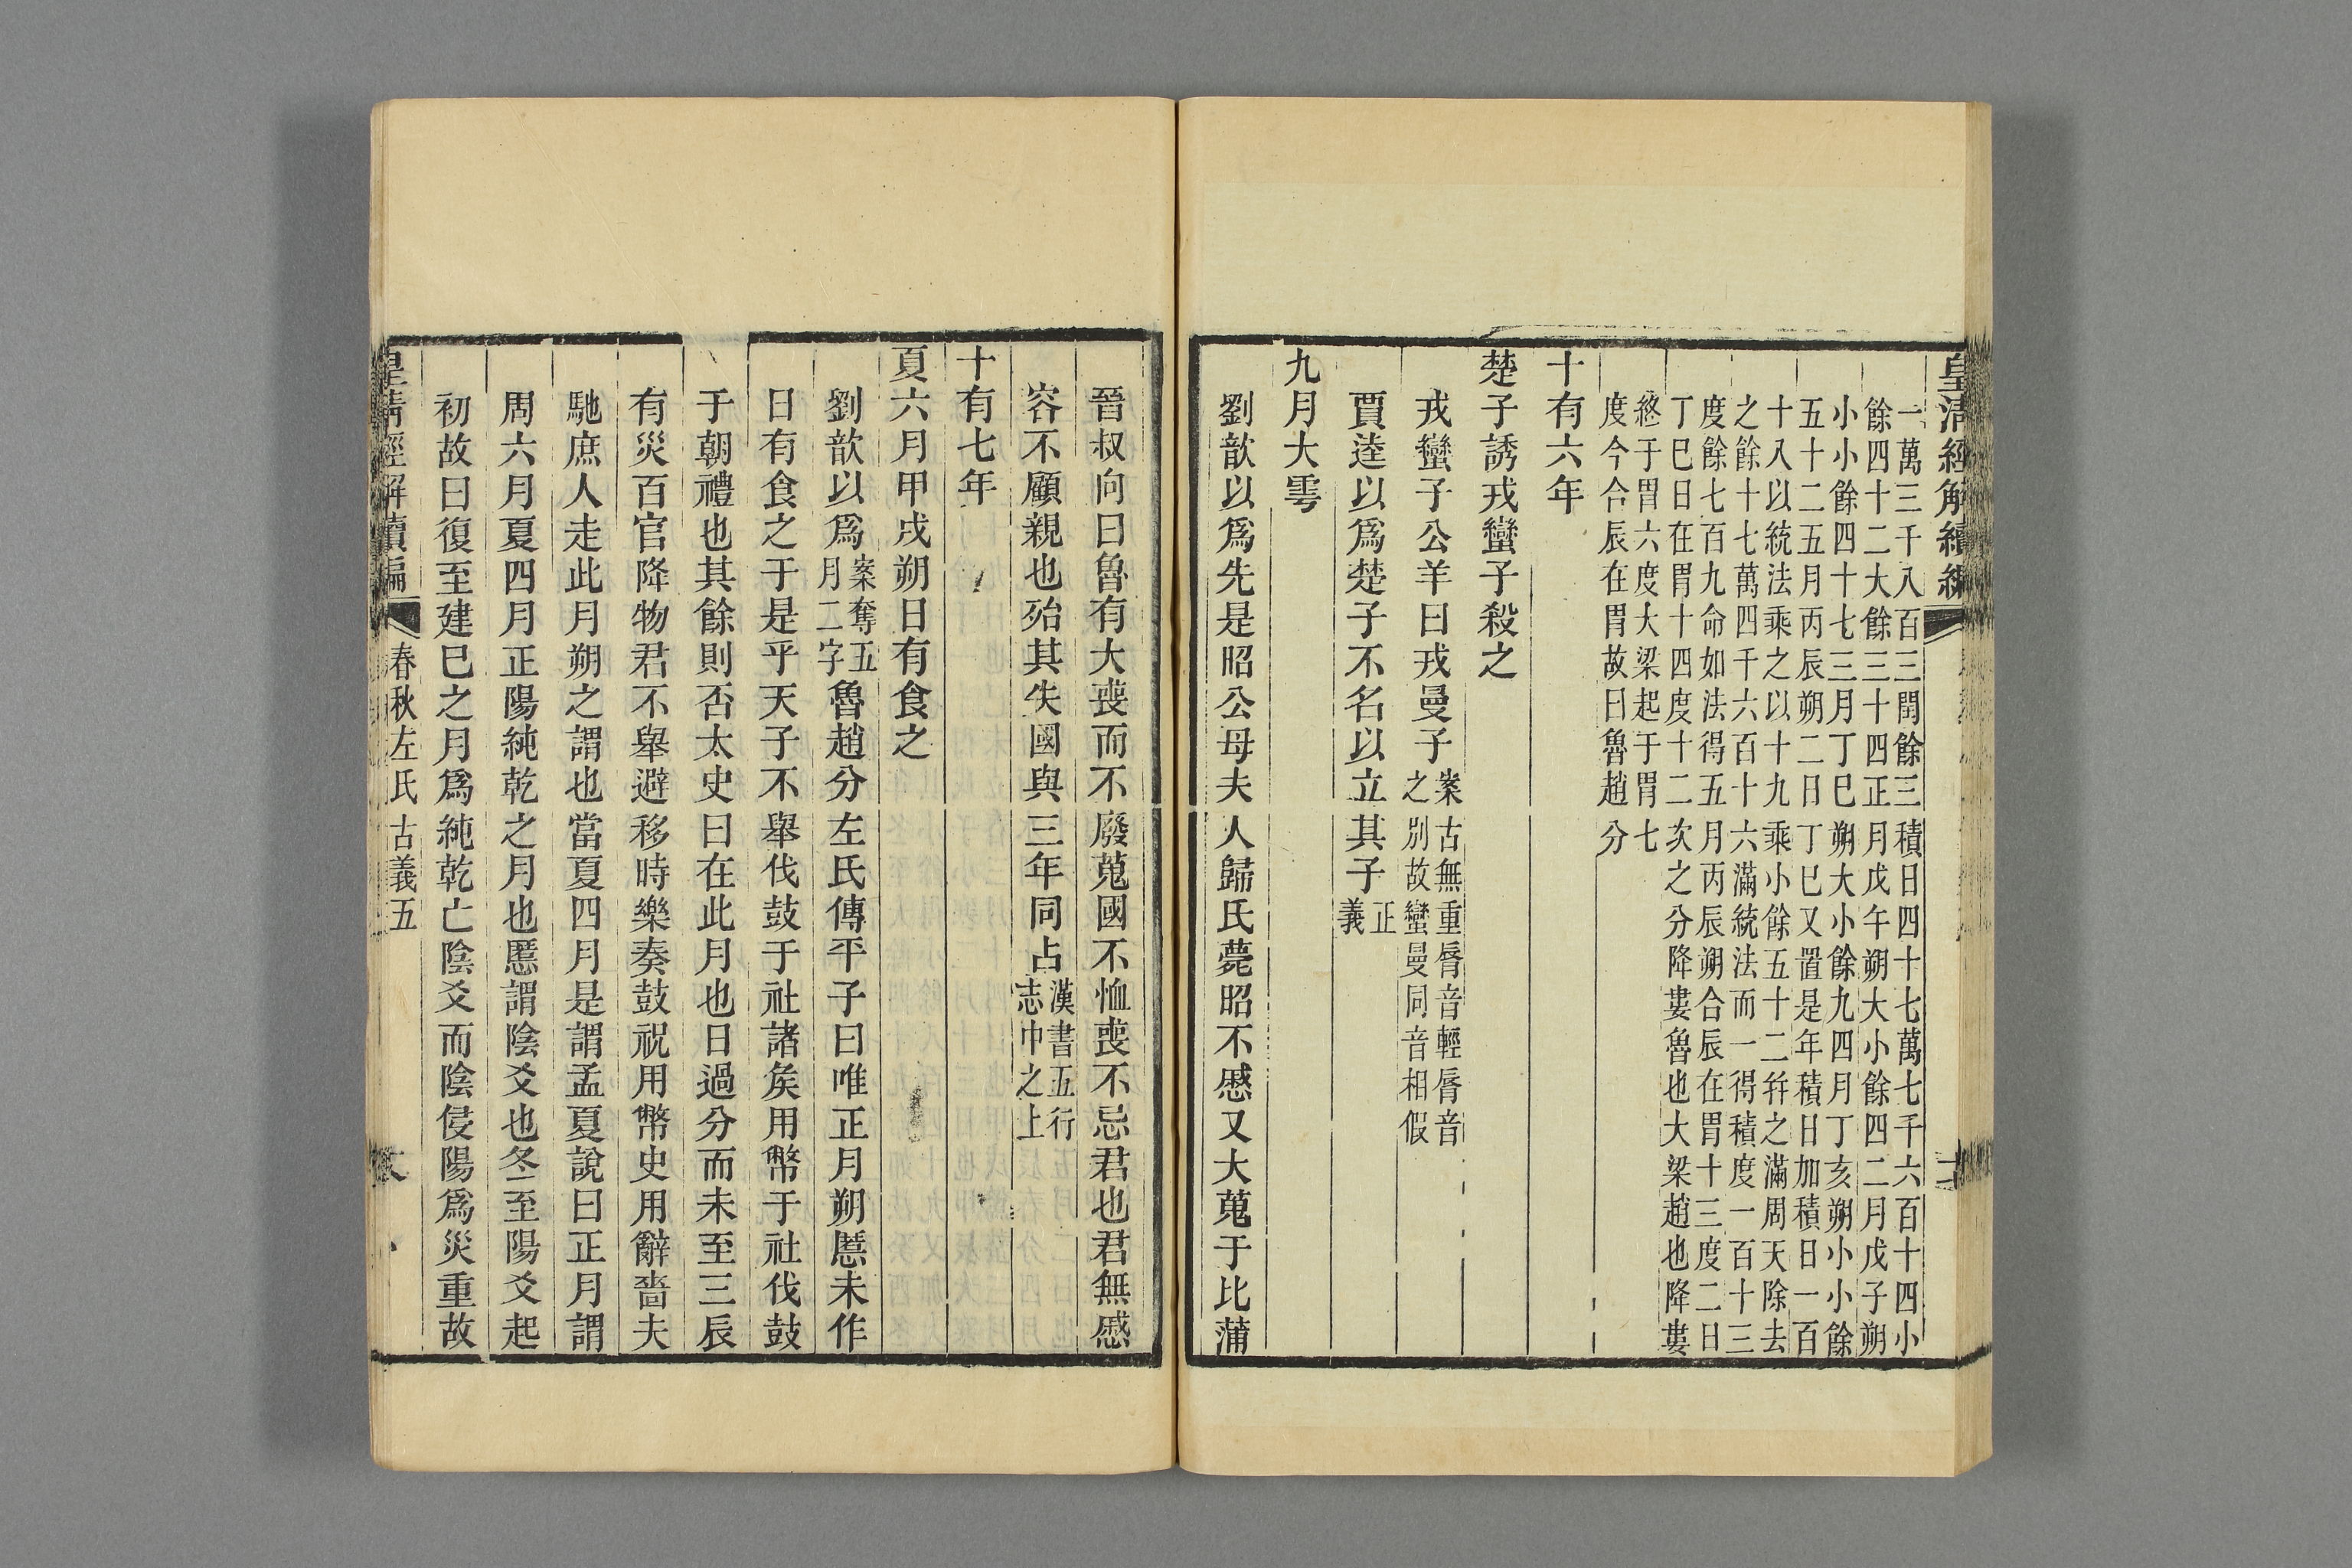 皇清經解續編
一萬三千八百三閏餘三積日四十七萬七千六百十四小
餘四十二大餘三十四正月戊午朔大小餘四二月戊子朔
小小餘四十七三月丁巳朔大小餘九四月丁亥朔小小餘
五十二五月丙辰朔二日丁巳又置是年積日加積日一百
十八以統法乘之以十九乘小餘五十二幷之滿周天除去
之餘十七萬四千六百十六滿統法而一得積度一百十三
度餘七百九命如法得五月丙辰朔合辰在胃十三度二日
丁巳日在胃十四度十二次之分降婁魯也大梁趙也降婁
終于胃六度大梁起于胃七
度今合辰在胃故曰魯趙分
十有六年
楚子誘戎蠻子殺之
戎蠻子公羊曰戎曼子案古無重脣音輕脣音
之別故蠻曼同音相假
賈逵以爲楚子不名以立其子正
義
九月大雩
劉歆以爲先是昭公母夫人歸氏薨昭不慼又大蒐于比蒲
晉叔向曰魯有大喪而不廢蒐國不恤喪不忌君也君無慼
容不顧親也殆其失國與三年同占漢書五行
志中之上
十有七年
夏六月甲戌朔日有食之
劉歆以爲案奪五
月二字魯趙分左氏傳平子曰唯正月朔慝未作
日有食之于是乎天子不舉伐鼓于社諸矦用幣于社伐鼓
于朝禮也其餘則否太史曰在此月也日過分而未至三辰
有災百官降物君不舉避移時樂奏鼓祝用幣史用辭嗇夫
馳庶人走此月朔之謂也當夏四月是謂孟夏說曰正月謂
周六月夏四月正陽純乾之月也慝謂陰爻也冬至陽爻起
初故曰復至建巳之月爲純乾亡陰爻而陰侵陽爲災重故
皇清經解續編
春秋左氏古義五